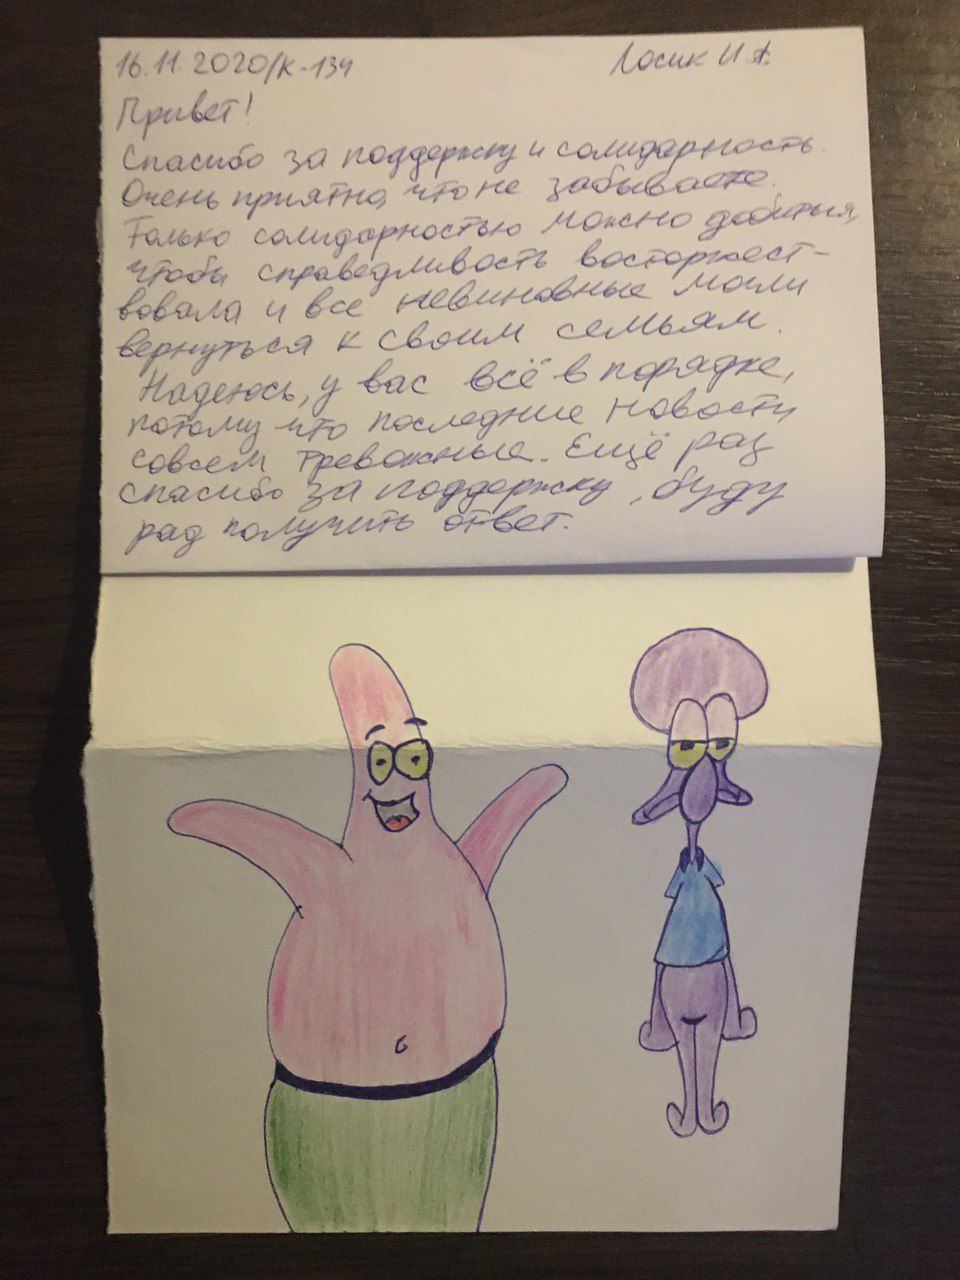 16.11.2020/К-134
Лосик И.А.
Привет!
Спасибо за поддержку и солидарность.
Очень приятно, что не забываете.
Только солидарностью можно добиться,
чтобы справедливость восторжест-
вовала и все невиновные могли
вернуться к своим семьям.
Надеюсь, у вас всё в порядке,
потому что последние новости
совсем тревожные. Ещё раз
спасибо за поддержку, буду
рад получить ответ.